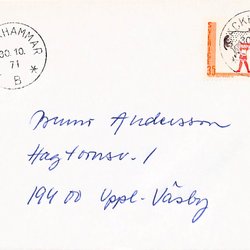 KHAMMAR
30.10.
71
* B *
ÄCKH
30
SVERIGE
35
Andersson
Hagtornsv. 1
194 00 Uppl-Väsby